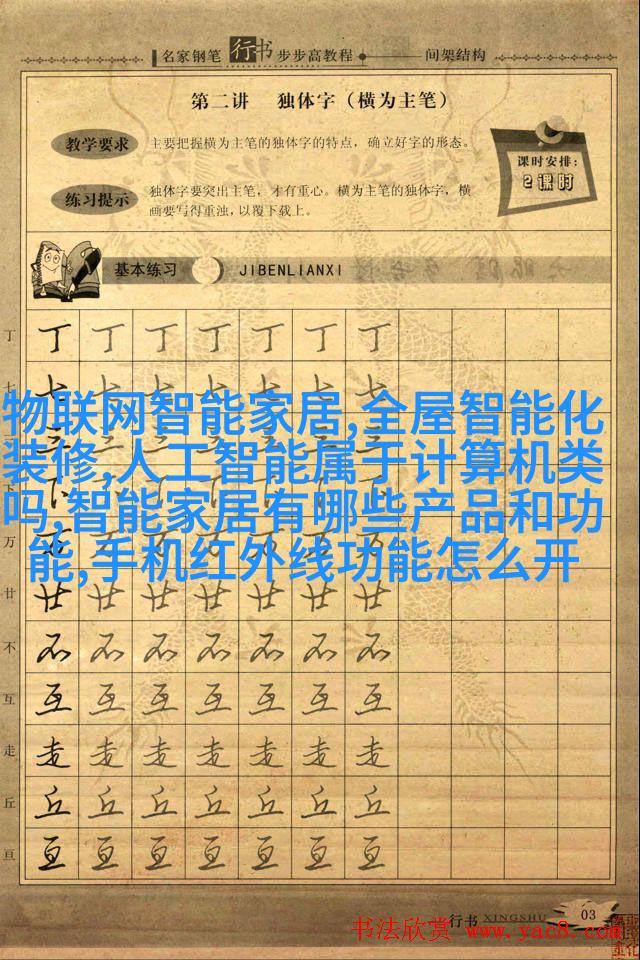 名家钢笔 行书 步步高教程 间架结构
第二讲 独体字（横为主笔）
教学要求 主要把握横为主笔的独体字的特点，确立好字的形态。
课时安排：
2课时
练习提示 独体字要突出主笔，才有重心。横为主笔的独体字，横
画要写得重浊，以覆下载上。
基本练习 JIBENLIANXI
丁 丁 丁 丁 丁 丁 丁 丁
七 七 七 七 七 七 七 七
物联网智能家居,全屋智能化
装修,人工智能属于计算机类
吗,智能家居有哪些产品和功
能,手机红外线功能怎么开
万
廿 廿 廿 廿 廿 廿 廿 廿
不 不 不 不 不 不 不 不
互 互 互 互 互 互 互 互
走 走 走 走 走 走 走 走
丘 丘 丘 丘 丘 丘 丘 丘
亘 亘 亘 亘 亘 亘 亘 亘
行书 XINGSHU 03
书法欣赏 www.yac8.com